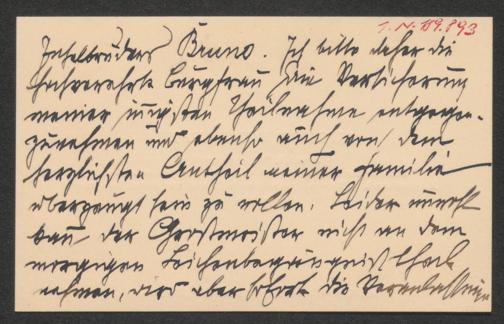 I. N. 189.893
Inselbruders Bruno. Ich bitte daher die
hochverehrte Burgfrau die Versicherung
meiner innigsten Theilnahme entgegen-
zunehmen und ebenso auch von dem
herzlichsten Antheil meiner Familie
überzeugt sein zu wollen. Leider
kann der Grossmeister nicht an dem
morgigen Leichenbegängniss theil
nehmen, wird aber sofort die Veranlassung